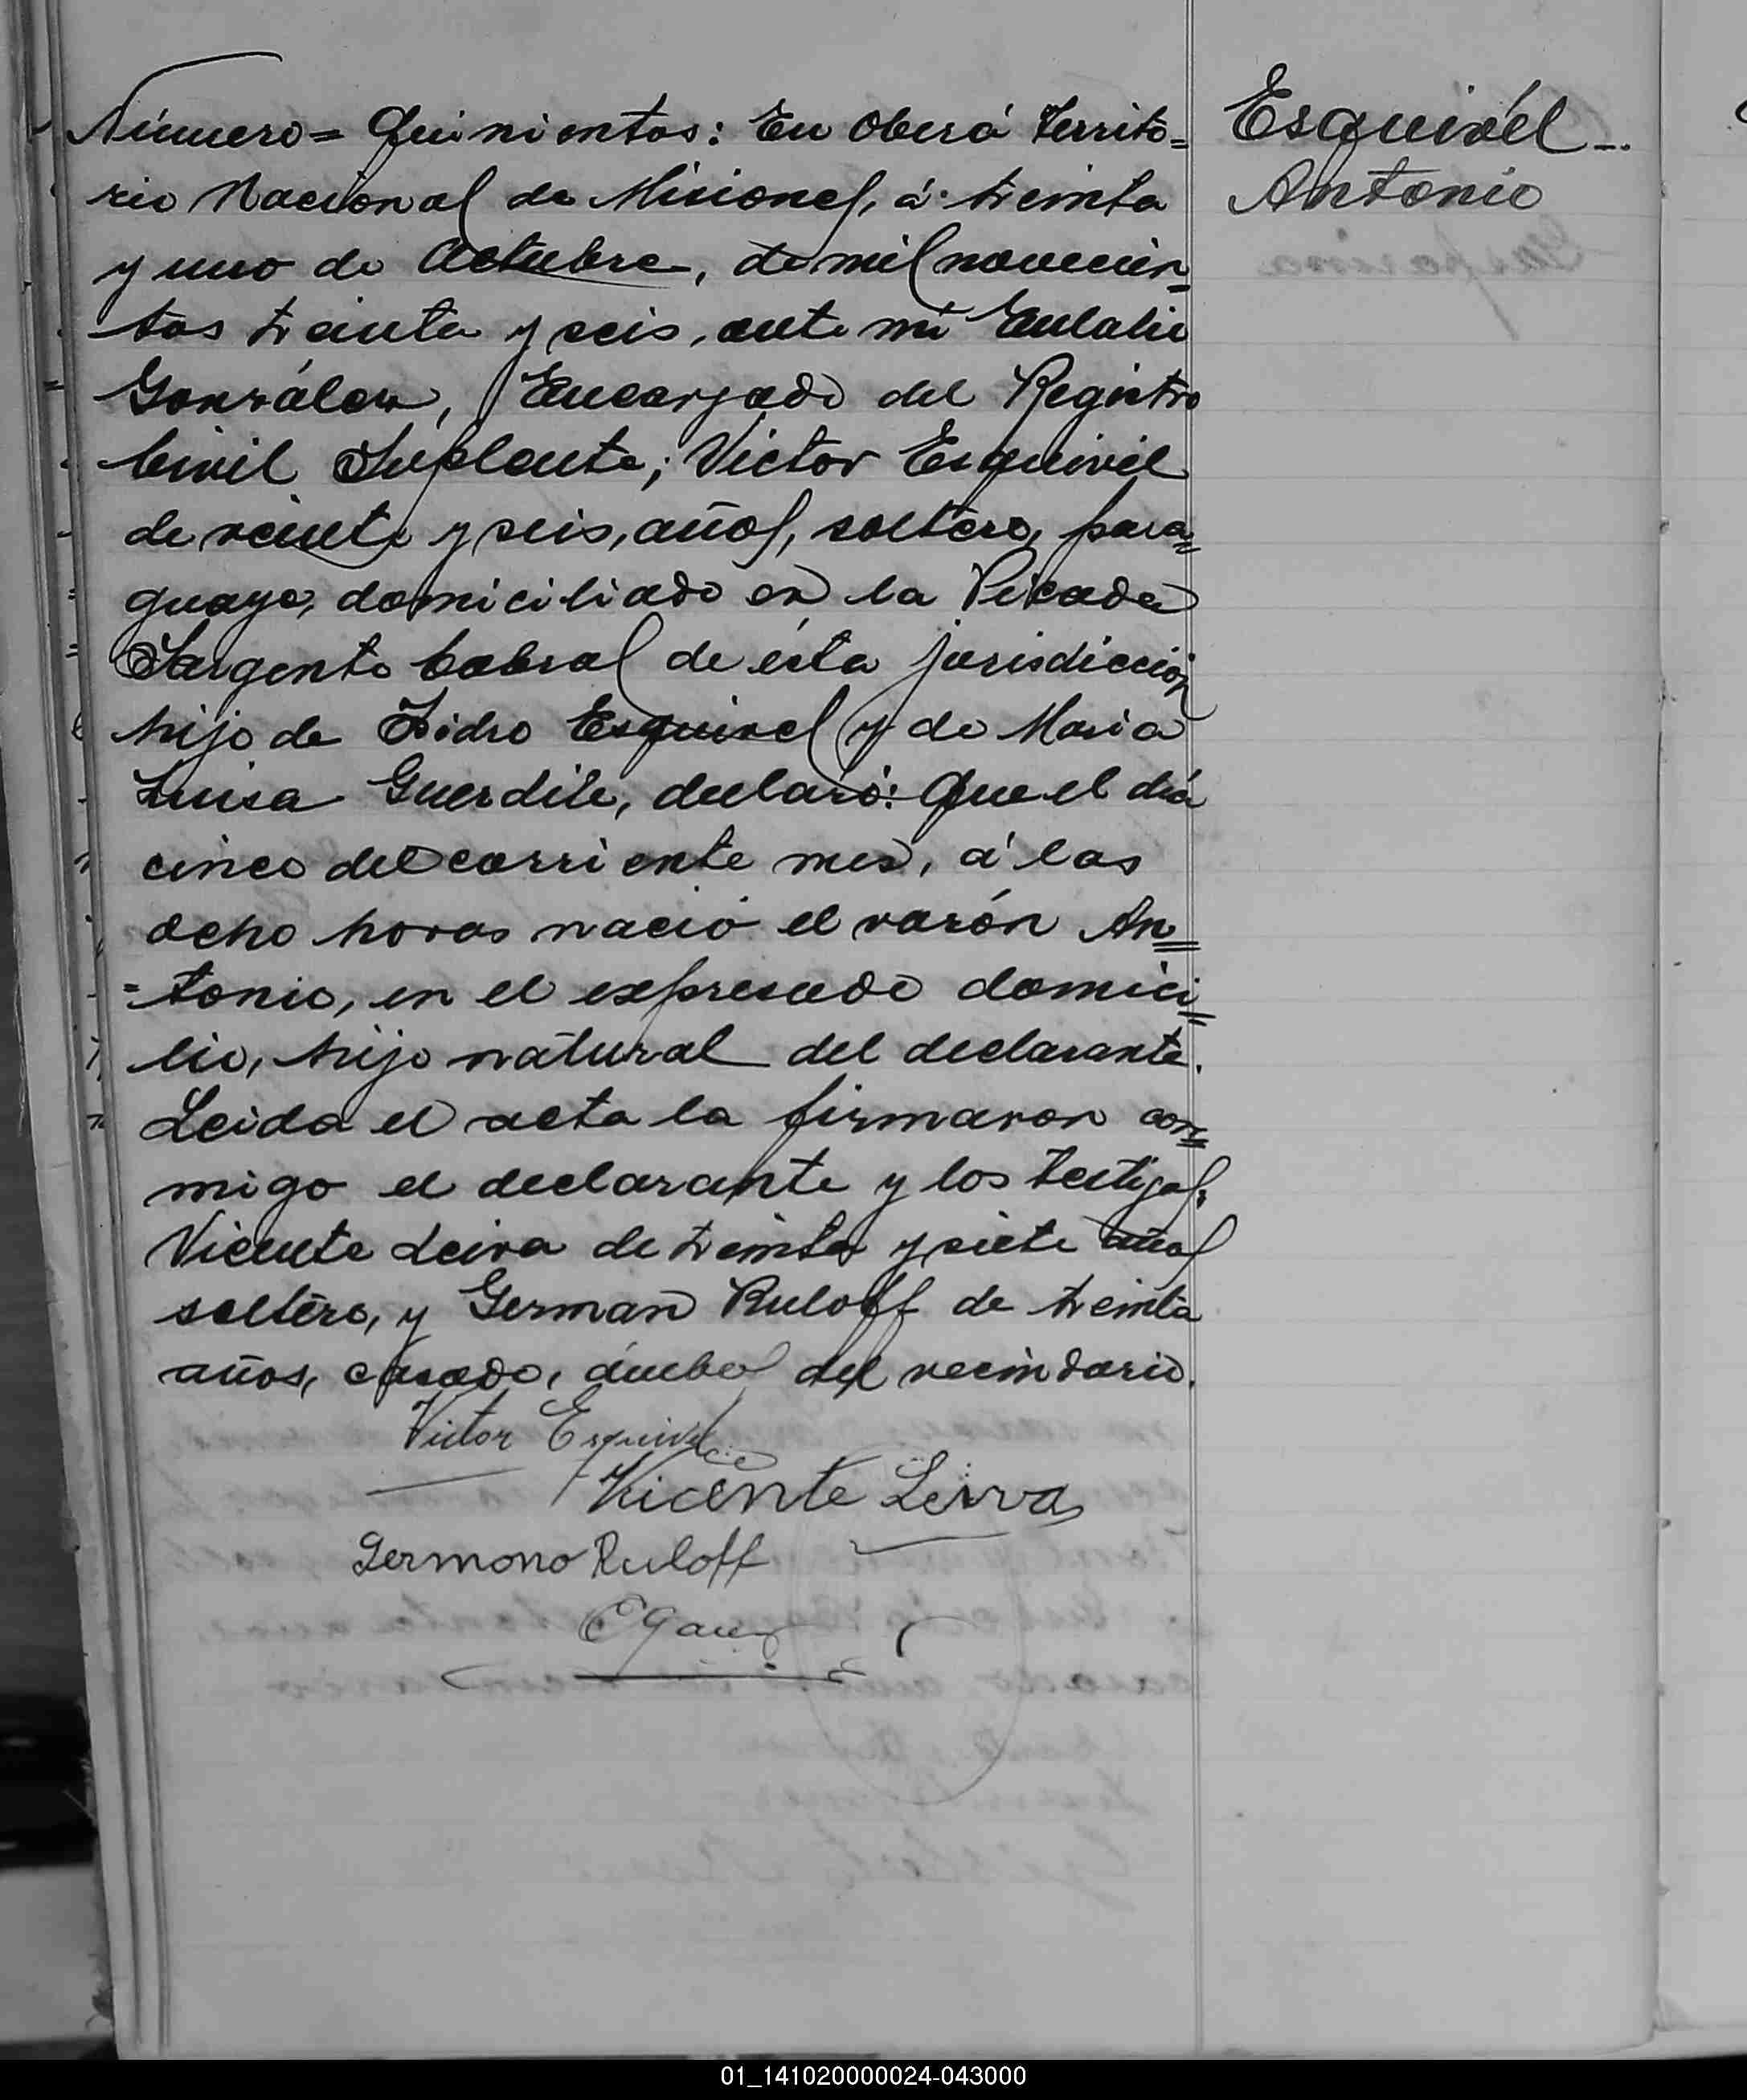 Número= Quinientos: En Oberá Territo=
rio Nacional de Misiones, á treinta
y uno de Octubre, de mil novecien=
tos treinta y seis, ante mí Eulalio
González, Encargado del Registro
Civil Suplente; Victor Esquivel
de veinte y seis, años, soltero, para=
guayo, domiciliado en la Picada
Sargento Cabral de ésta jurisdicción
hijo de Isidro Esquivel y de Maria
Luisa declaró: Que el día
cinco del corriente mes, á las
ocho horas nació el varón An=
=tonio, en el expresado domici=
lio, hijo natural del declarante.
Leida el acta la firmaron con=
migo el declarante y los testigos:
Vicente Leiva de treinta y siete años
soltero, y German Ruloff de treinta
años, casado, ámbos del vecindario.
Victor Esquivel
Vicente Leiva
Germano Ruloff
Esquivél
Antonio
01_141020000024-043000